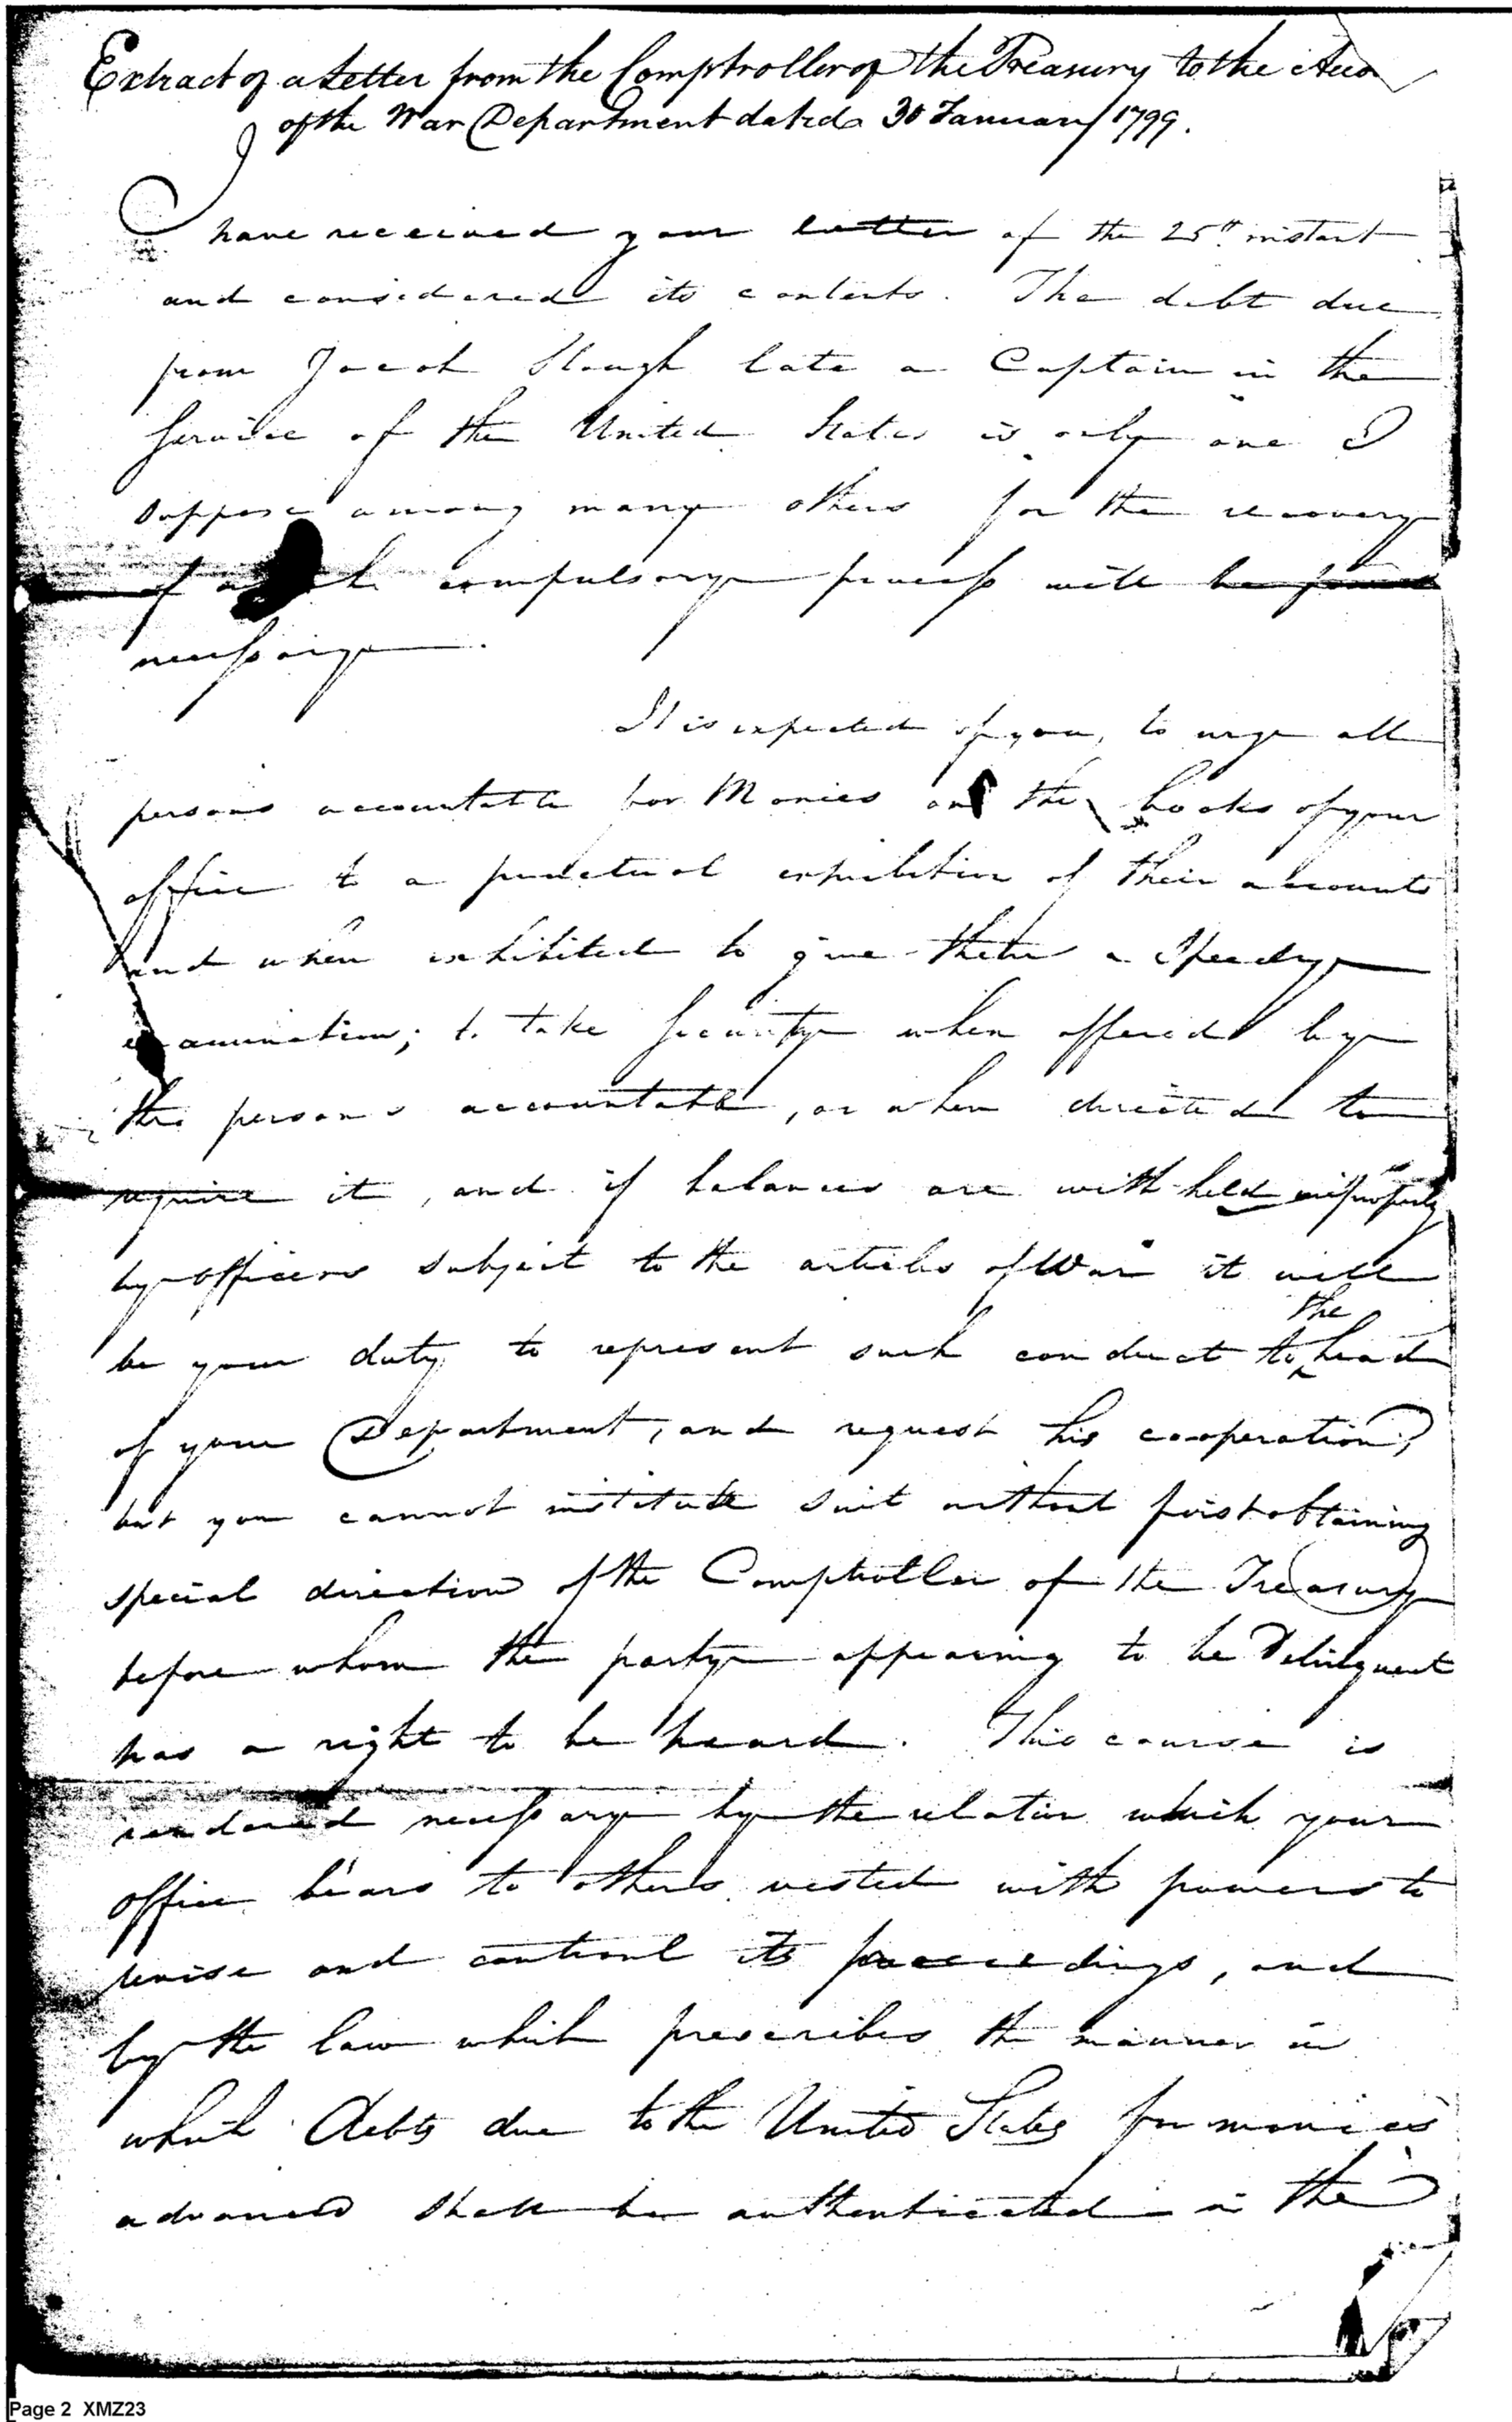 Extract of a Letter from the Comptroller of the Treasury to the Acco
of the War Department dated 30 January 1799.
I have received your letter of the 25th instant
and considered its contents. The debt due
from Jacob Slough late a Captain in the
Service of the United States is only one I
suppose among many others for the recovery
of compulsory process will be found
necessary.
It is expected of you, to urge all
persons accountable for Monies on the books of your
office to a punctual exhibition of their accounts
and when exhibited to give them a Speedy
examination; to take Security when offered by
the persons accountable, or when directed to
require it, and if balances are with-held improperly
by officers subject to the articles of War it will
be your duty to represent such conduct to the head
of your Department, and request his cooperation,
but you cannot institute suit without first obtaining
special direction of the Comptroller of the Treasury
before whom the party appearing to be Delinquent
has a right to be heard. This course is
rendered necessary by the relation which your
office bears to others vested with powers to
revise and controul its proceedings, and
by the law which prescribes the manner in
which Debts due to the United States for monies
advanced shall be authenticated in the
Page 2 XMZ23